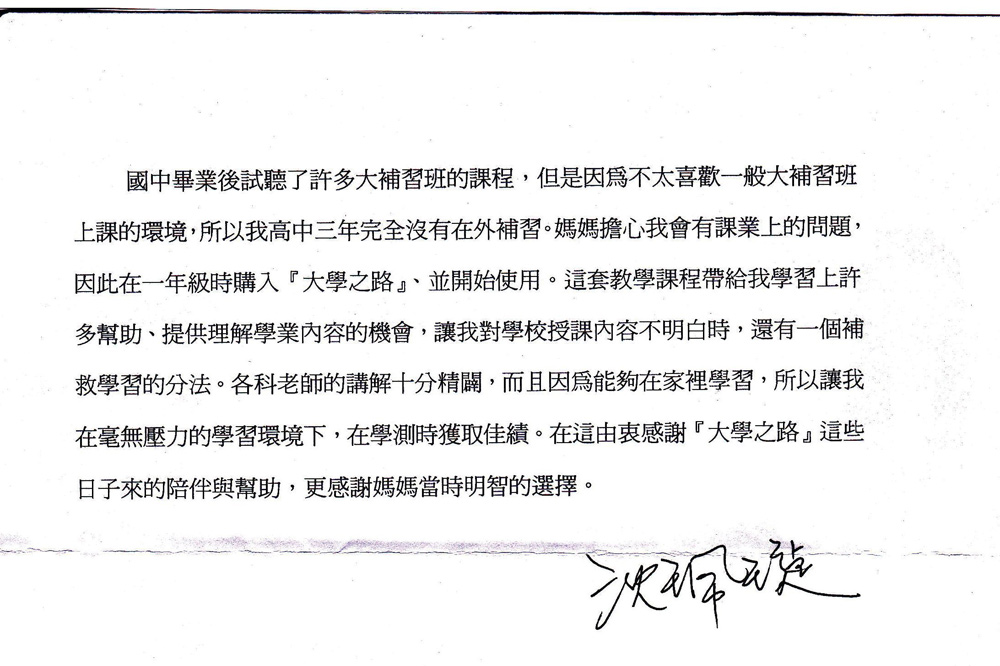 國中畢業後試聽了許多大補習班的課程，但是因爲不太喜歡一般大補習班
上課的環境，所以我高中三年完全沒有在外補習。媽媽擔心我會有課業上的問題，
因此在一年級時購入『大學之路』、並開始使用。這套教學課程帶給我學習上許
多幫助、提供理解學業內容的機會，讓我對學校授課內容不明白時，還有一個補
救學習的分法。各科老師的講解十分精闢，而且因爲能夠在家裡學習，所以讓我
在毫無壓力的學習環境下，在學測時獲取佳績。在這由衷感謝『大學之路』這些
日子來的陪伴與幫助，更感謝媽媽當時明智的選擇。
沈珮璇